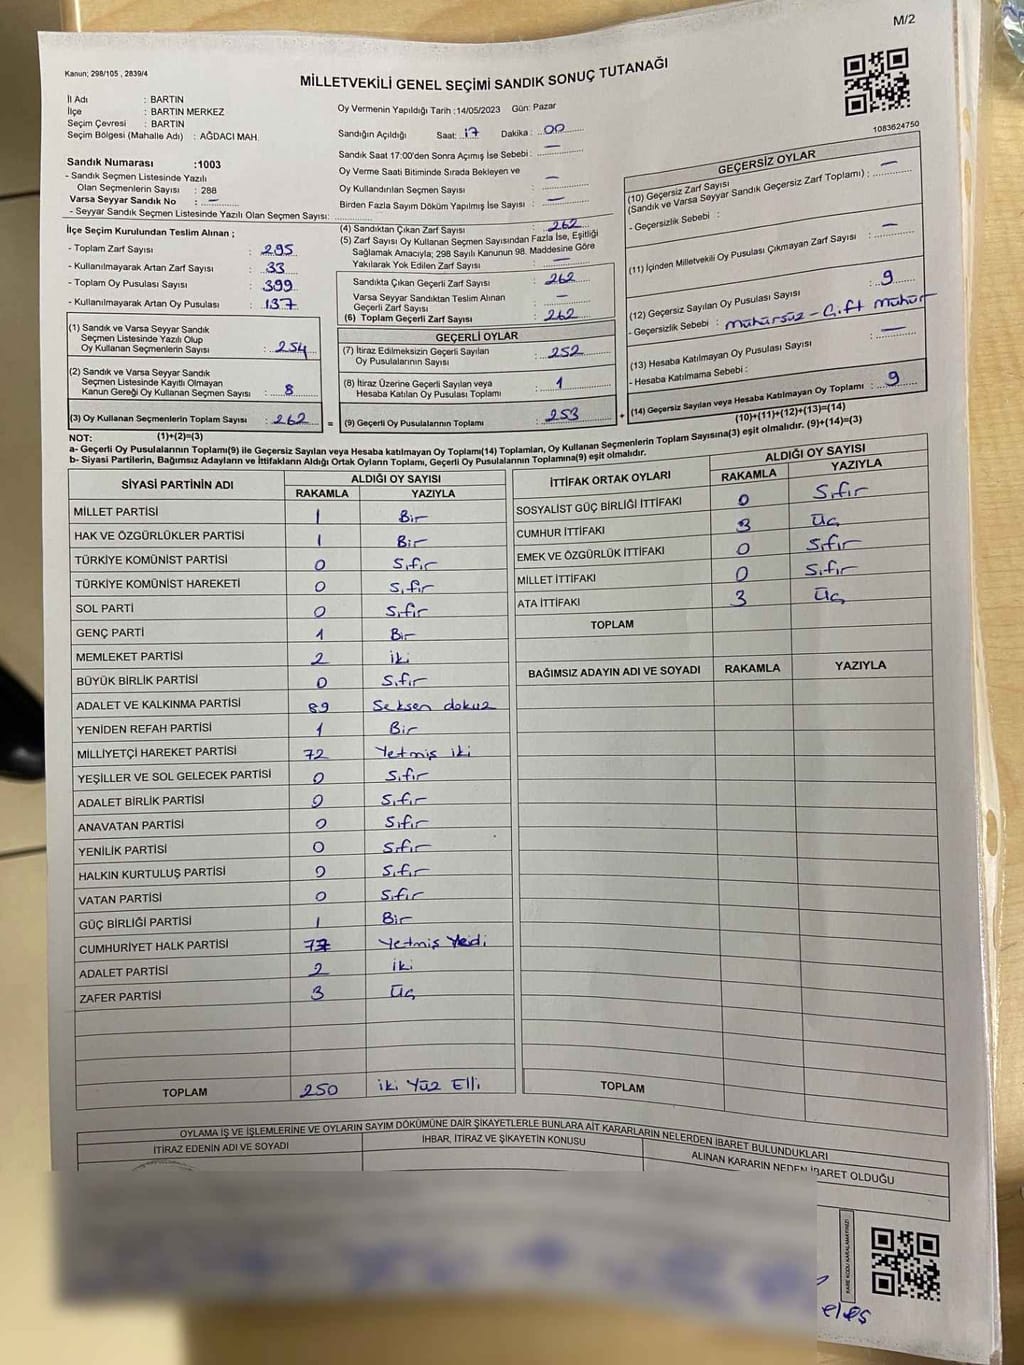 M/2
Kanun; 298/105 , 2839/4
MİLLETVEKİLİ GENEL SEÇİMİ SANDIK SONUÇ TUTANAĞI
1083624750
İl Adı : BARTIN
İlçe : BARTIN MERKEZ
Seçim Çevresi : BARTIN
Seçim Bölgesi (Mahalle Adı) : AĞDACI MAH.
Sandık Numarası :1003
- Sandık Seçmen Listesinde Yazılı
Olan Seçmenlerin Sayısı : 288
Varsa Seyyar Sandık No : —
- Seyyar Sandık Seçmen Listesinde Yazılı Olan Seçmen Sayısı:
Oy Vermenin Yapıldığı Tarih :14/05/2023 Gün: Pazar
Sandığın Açıldığı Saat: 17 Dakika : 00
Sandık Saat 17:00'den Sonra Açımış İse Sebebi : —
Oy Verme Saati Bitiminde Sırada Bekleyen ve
Oy Kullandırılan Seçmen Sayısı : —
Birden Fazla Sayım Döküm Yapılmış İse Sayısı : —
İlçe Seçim Kurulundan Teslim Alınan ;
- Toplam Zarf Sayısı : 295
- Kullanılmayarak Artan Zarf Sayısı : 33
- Toplam Oy Pusulası Sayısı : 399
- Kullanılmayarak Artan Oy Pusulası : 137
(1) Sandık ve Varsa Seyyar Sandık
Seçmen Listesinde Yazılı Olup
Oy Kullanan Seçmenlerin Sayısı : 254
(2) Sandık ve Varsa Seyyar Sandık
Seçmen Listesinde Kayıtlı Olmayan
Kanun Gereği Oy Kullanan Seçmen Sayısı : 8
(3) Oy Kullanan Seçmenlerin Toplam Sayısı : 262
(1)+(2)=(3)
(4) Sandıktan Çıkan Zarf Sayısı : 262
(5) Zarf Sayısı Oy Kullanan Seçmen Sayısından Fazla İse, Eşitliği
Sağlamak Amacıyla; 298 Sayılı Kanunun 98. Maddesine Göre
Yakılarak Yok Edilen Zarf Sayısı : —
Sandıkta Çıkan Geçerli Zarf Sayısı : 262
Varsa Seyyar Sandıktan Teslim Alınan
Geçerli Zarf Sayısı : —
(6) Toplam Geçerli Zarf Sayısı : 262
GEÇERLİ OYLAR
(7) İtiraz Edilmeksizin Geçerli Sayılan
Oy Pusulalarının Sayısı : 252
(8) İtiraz Üzerine Geçerli Sayılan veya
Hesaba Katılan Oy Pusulası Toplamı : 1
= (9) Geçerli Oy Pusulalarının Toplamı : 253
GEÇERSİZ OYLAR
(10) Geçersiz Zarf Sayısı
(Sandık ve Varsa Seyyar Sandık Geçersiz Zarf Toplamı) : —
- Geçersizlik Sebebi :
(11) İçinden Milletvekili Oy Pusulası Çıkmayan Zarf Sayısı : —
(12) Geçersiz Sayılan Oy Pusulası Sayısı : 9
- Geçersizlik Sebebi : mühürsüz - Çift mühür
(13) Hesaba Katılmayan Oy Pusulası Sayısı : —
- Hesaba Katılmama Sebebi :
+ (14) Geçersiz Sayılan veya Hesaba Katılmayan Oy Toplamı : 9
(10)+(11)+(12)+(13)=(14)
NOT:
a- Geçerli Oy Pusulalarının Toplamı(9) ile Geçersiz Sayılan veya Hesaba katılmayan Oy Toplamı(14) Toplamları, Oy Kullanan Seçmenlerin Toplam Sayısına(3) eşit olmalıdır. (9)+(14)=(3)
b- Siyasi Partilerin, Bağımsız Adayların ve İttifakların Aldığı Ortak Oyların Toplamı, Geçerli Oy Pusulalarının Toplamına(9) eşit olmalıdır.
SİYASİ PARTİNİN ADI ALDIĞI OY SAYISI
RAKAMLA YAZIYLA
MİLLET PARTİSİ 1 Bir
HAK VE ÖZGÜRLÜKLER PARTİSİ 1 Bir
TÜRKİYE KOMÜNİST PARTİSİ 0 Sıfır
TÜRKİYE KOMÜNİST HAREKETİ 0 Sıfır
SOL PARTİ 0 Sıfır
GENÇ PARTİ 1 Bir
MEMLEKET PARTİSİ 2 iki
BÜYÜK BİRLİK PARTİSİ 0 Sıfır
ADALET VE KALKINMA PARTİSİ 89 Seksen dokuz
YENİDEN REFAH PARTİSİ 1 Bir
MİLLİYETÇİ HAREKET PARTİSİ 72 Yetmiş iki
YEŞİLLER VE SOL GELECEK PARTİSİ 0 Sıfır
ADALET BİRLİK PARTİSİ 0 Sıfır
ANAVATAN PARTİSİ 0 Sıfır
YENİLİK PARTİSİ 0 Sıfır
HALKIN KURTULUŞ PARTİSİ 0 Sıfır
VATAN PARTİSİ 0 Sıfır
GÜÇ BİRLİĞİ PARTİSİ 1 Bir
CUMHURİYET HALK PARTİSİ 77 Yetmiş Yedi
ADALET PARTİSİ 2 iki
ZAFER PARTİSİ 3 Üç
TOPLAM 250 iki Yüz Elli
İTTİFAK ORTAK OYLARI ALDIĞI OY SAYISI
RAKAMLA YAZIYLA
SOSYALİST GÜÇ BİRLİĞİ İTTİFAKI 0 Sıfır
CUMHUR İTTİFAKI 3 Üç
EMEK VE ÖZGÜRLÜK İTTİFAKI 0 Sıfır
MİLLET İTTİFAKI 0 Sıfır
ATA İTTİFAKI 3 Üç
TOPLAM
BAĞIMSIZ ADAYIN ADI VE SOYADI RAKAMLA YAZIYLA
TOPLAM
OYLAMA İŞ VE İŞLEMLERİNE VE OYLARIN SAYIM DÖKÜMÜNE DAİR ŞİKAYETLERLE BUNLARA AİT KARARLARIN NELERDEN İBARET BULUNDUKLARI
İTİRAZ EDENİN ADI VE SOYADI İHBAR, İTİRAZ VE ŞİKAYETİN KONUSU ALINAN KARARIN NEDEN İBARET OLDUĞU
KARE KODU KARALAMAYINIZ!